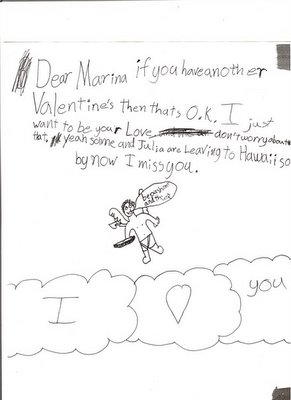 Dear Marina if you have another
Valentine's then thats O.K. I just
want to be your Love, don't worry about
that. yeah so me and Julia are Leaving to Hawaii so
by now I miss you.
I you